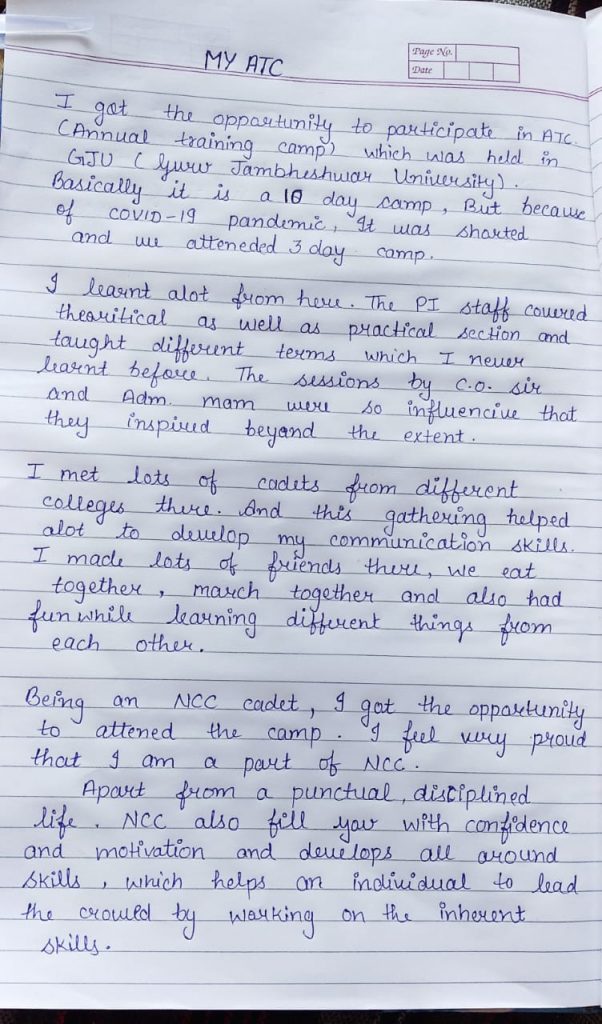 Page No.
Date
MY ATC
I got the opportunity to participate in ATC.
(Annual training camp) which was held in
GJU (Guru Jambheshwar University).
Basically it is a 10 day camp, But because
of COVID-19 pandemic, It was shorted
and we atteneded 3 day camp.
I learnt alot from here. The PI staff covered
thearitical as well as practical section and
taught different terms which I never
learnt before. The sessions by C.O. sir
and Adm. mam were so influencive that
they inspired beyand the extent.
I met lots of cadets from different
colleges there. And this gathering helped
alot to develop my communication skills.
I made lots of friends there, we eat
together, march together and also had
fun while learning different things from
each other.
Being an NCC cadet, I got the opportunity
to attened the camp. I feel very proud
that I am a part of NCC.
Apart from a punctual, disciplined
life. NCC also fill your with confidence
and motivation and develops all around
skills, which helps an individual to lead
the crowled by working on the inherent
skills.